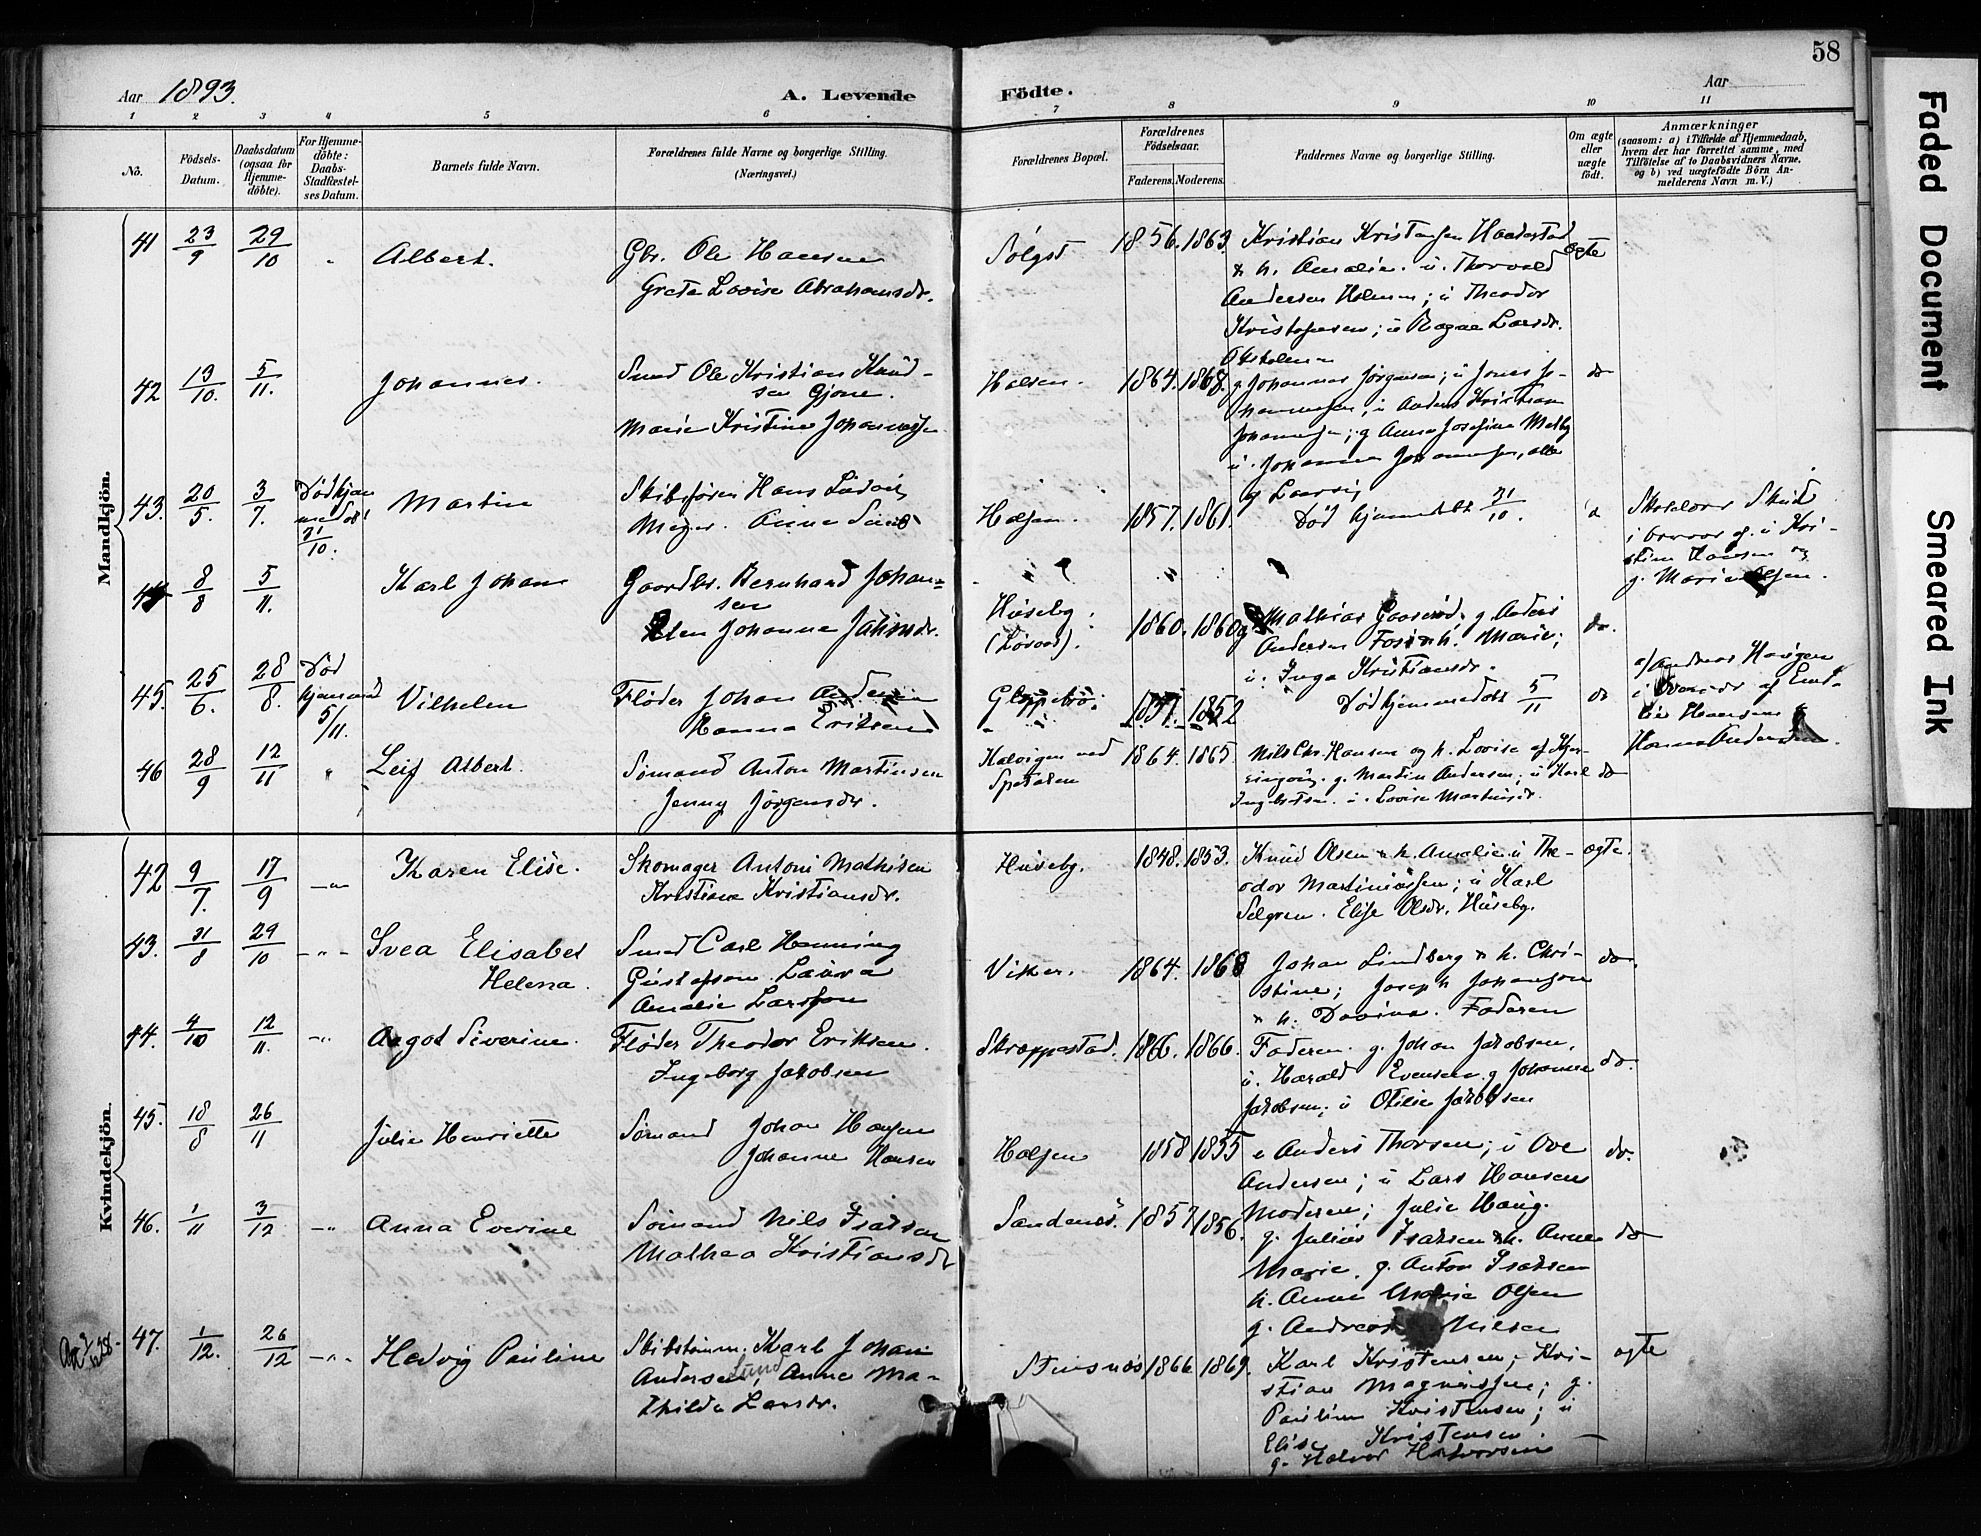 58
Aar 1893.
A. Levende
Födte.
Aar
1 2 3 4 5 6 7 8 9 10 11
No.
Födsels-
Datum.
Daabsdatum
(ogsaa for
Hjemme-
döbte).
For Hjemme-
döbte:
Daabs-
Stadfæstel-
ses Datum.
Barnets fulde Navn.
Forældrenes fulde Navne og borgerlige Stilling.
(Næringsvei.)
Forældrenes Bopæl.
Forældrenes
Födselsaar.
Faderens. Moderens.
Faddernes Navne og borgerlige Stilling.
Om ægte
eller
uægte
födt.
Anmærkninger
(saasom: a) i Tilfælde af Hjemmedaab,
hvem der har forrettet samme, med
Tilföielse af to Daabsvidners Navne,
og b) ved uægtefödte Börn An-
melderens Navn m. V.)
Mandkjön.
41 23/9 29/10 Albert.
Gbr. Ole Hansen
Grete Lovise Abrahamsdr.
1856. 1863.
Kristian Kristensen
& h. Amalie. u. Thorvald
Andersen Holmen; u Theodor
Kristofersen; u Ragna Larsdr.
ægte
42 13/10. 5/11. Johannes.
Smed Ole Kristian Knud-
sen Gjone.
Marie Kristine
Halsen. 1864. 1868.
g Johannes Jörgensen; u Jones Jo-
hannesen; u Anders Kristian
Johannesen; g Anna Josefine Melby
u. Johanna Johannesen, alle
g Laurvig
do
43. 20/5. 3/7. Död hjem
medöbt
31/10.
Martin
Skibsförer Hans Ludvig
Meyer. Anna
Halsen. 1857. 1861.
Död hjemmedöbt 31/10.
i og. u Kri-
stine Hansen og
g. Marie Olsen.
44 8/8 5/11. Karl Johan
Gaardbr. Bernhard Johan-
sen
Elen Johanne
Huseby.
1860. 1860
Mathias g. Anders
Andersen & h. Marie;
u. Inga Kristiansdr.
do.
45. 25/6. 28/8. Död
hjemmed
5/11.
Vilhelm
Fløder Johan Andersen
Hanna Eriksen
1852
Död hjemmedöbt 5/11
do
a) Andreas Haugen
af
Hansen &
Hanna Andersen.
46 28/9 12/11 " Leif Albert.
Sömand Anton Martinsen
Jenny Jörgensdr.
Kalvigen ved
1864. 1865
Nils Chr. Hansen og h. Lovise af
g. Martin Andersen; u Karl
u. Lovise Martinsdr.
do
Kvindekjön.
42 9/7. 17/9 -"- Karen Elise.
Skomager Antoni Mathisen
Kristiane Kristiansdr.
Huseby. 1848. 1853.
Knud Olsen & h. Amalie u The-
odor Martiniussen; u Karl
Selgren. Elise Olsdr. Huseby.
ægte.
43. 31/8 29/10 -"- Svea Elisabet
Helena.
Smed Carl Henning
Gustafson. Laura
Amalie Larsson
Visker. 1864. 1868
Johan Lindberg & h. Chri-
stine; Joseph Johansson
& h. Davina. Faderen
do.
44. 4/10 12/11. -"- Aagot Severine.
Fløder Theodor Eriksen.
Ingeborg Jakobsen
1866. 1866.
Faderen. g. Johan Jakobsen,
u. Harald Evensen g Johanne
Jakobsen; u Otilie Jakobsen
do.
45. 18/8 26/11 Julie Henriette
Sömand Johan Hansen
Johanne Hansen
Halsen 1858 1855
e Anders Thorsen; u Ove
Andersen; u Lars Hansen
Moderen; Julie Haug.
do.
46. 1/11 3/12 -"- Anna Everine
Sömand Nils Isaksen
Mathea Kristiansdr
Sandenes. 1857 1856.
g. Julius Isaksen & h. Anne
Marie. g. Anton Isaksen
h. Anna Marie Olsen
g. Andreas Nilsen
do
47. 1/12. 26/12 -"- Hedvig Pauline
Skibstömm. Karl Johan
Andersen Lund, Anna Ma-
thilde Larsdr.
1866 1869.
Karl Kristensen; Kri-
stian Magnussen; g.
Pauline Kristensen; u
Elise Kristensen.
g. Halvor Halvorsen
ægte
Faded Document
Smeared Ink